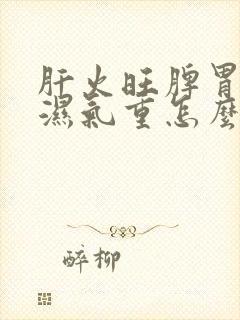 肝火旺脾胃
濕氣重怎麼
醉柳